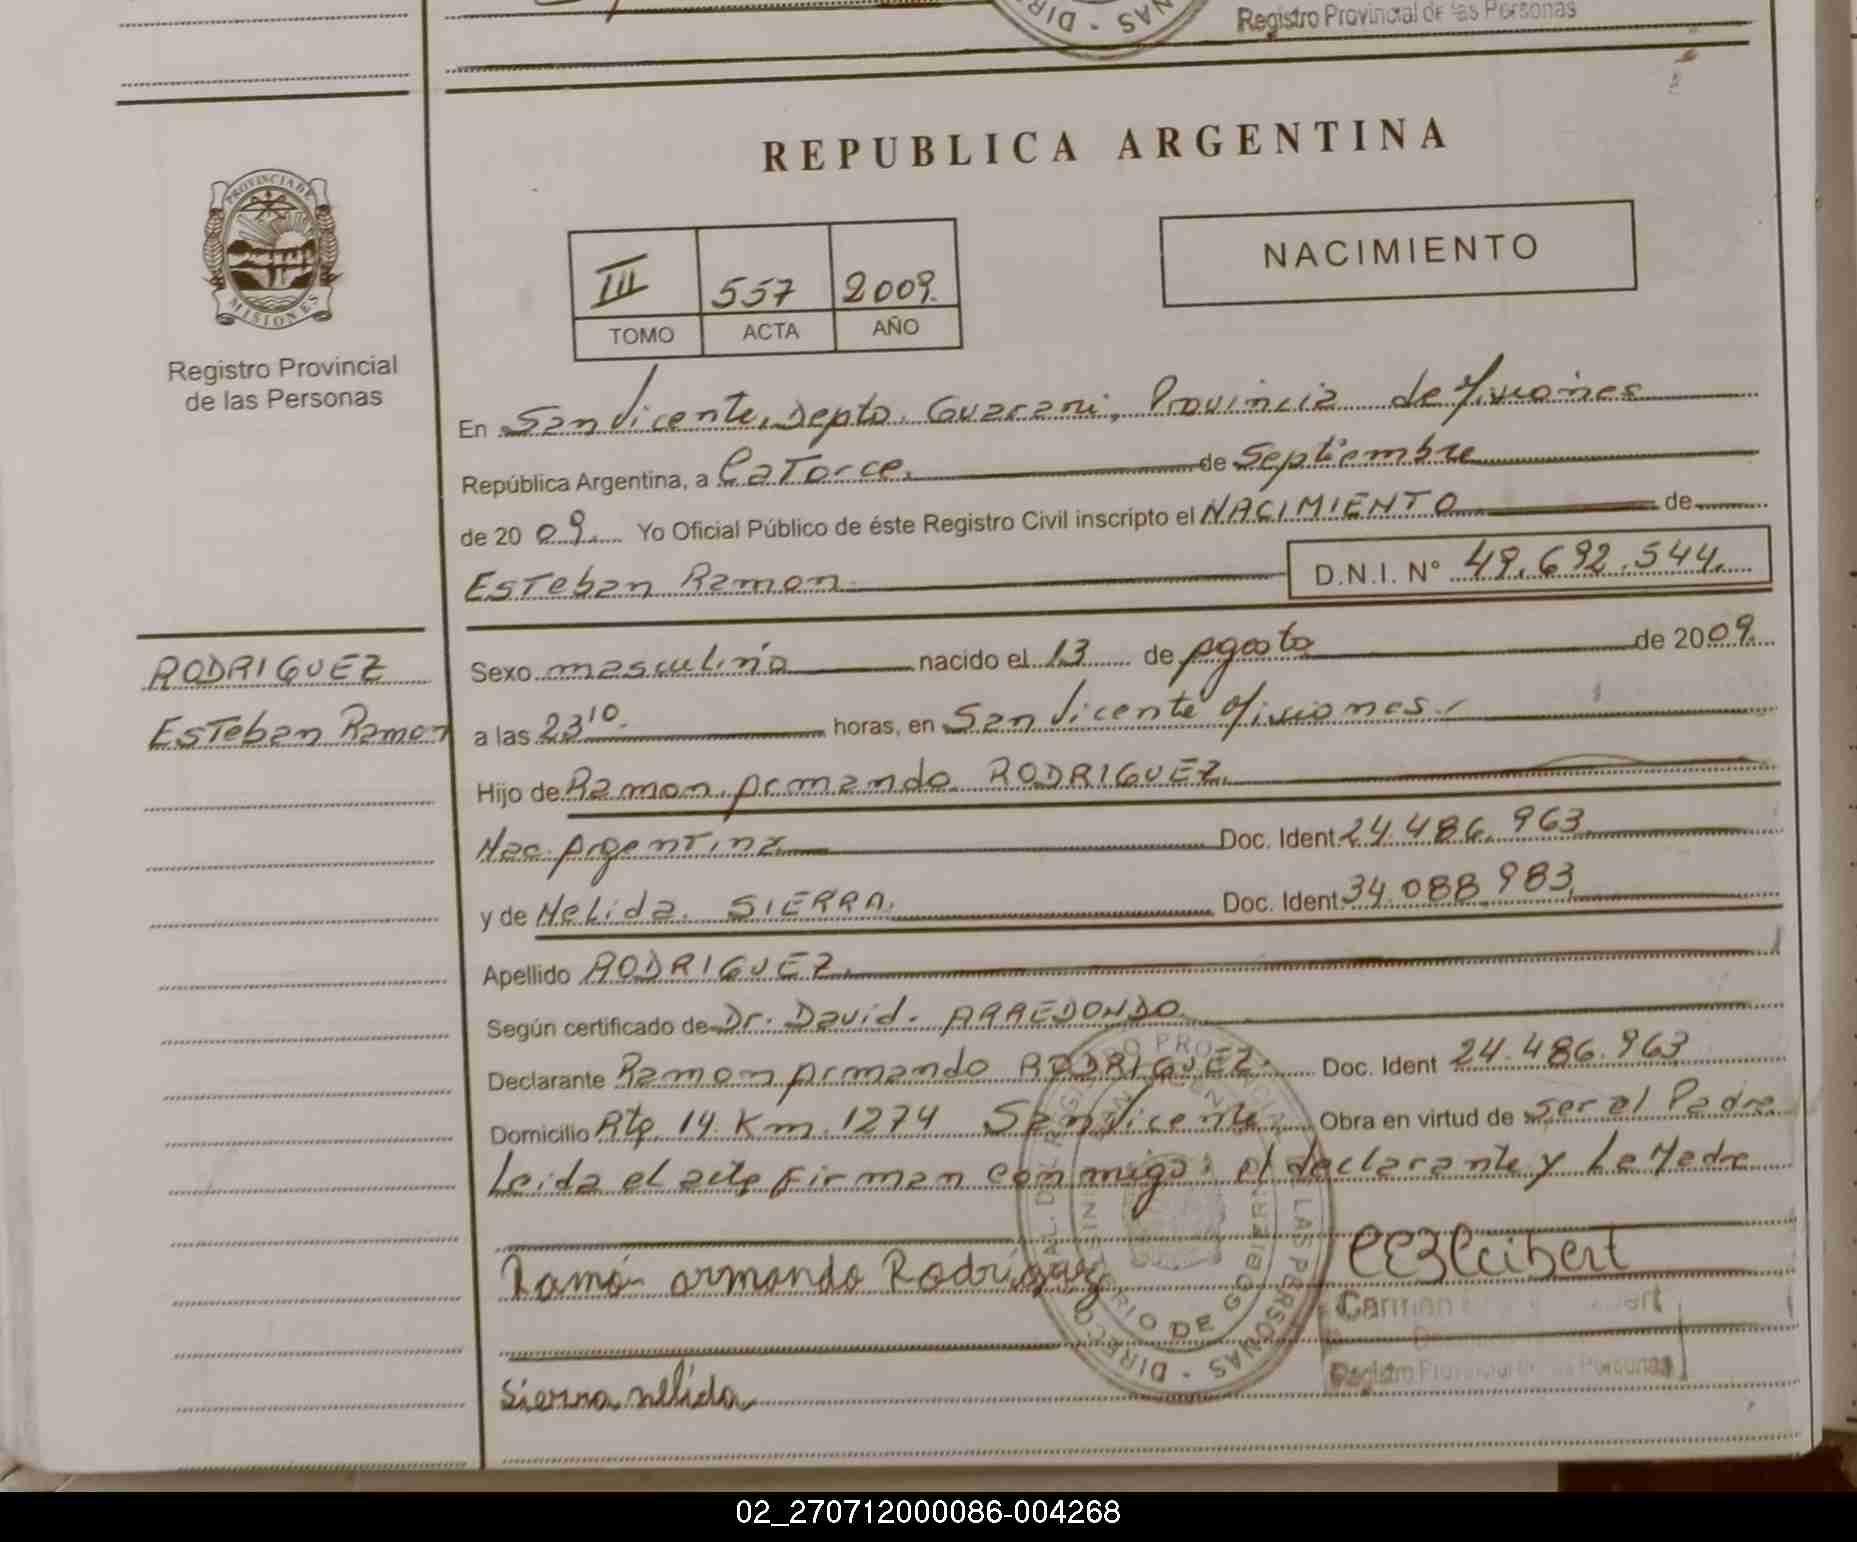 Registro Provincial de las Personas
REPUBLICA ARGENTINA
PROVINCIA DE
MISIONES
Registro Provincial
de las Personas
III 557 2009.
TOMO ACTA AÑO
NACIMIENTO
En San Vicente, Depto. Guarani, Provincia de Misiones
República Argentina, a Catorce. de Septiembre
de 2009. Yo Oficial Público de éste Registro Civil inscripto el NACIMIENTO de
Esteban Ramon D.N.I. N° 49.692.544.
RODRIGUEZ
Esteban Ramon
Sexo masculino nacido el 13 de Agosto de 2009.
a las 23 10. horas, en San Vicente Misiones.
Hijo de Ramon Armando RODRIGUEZ.
Nac. Argentina Doc. Ident. 24.486.963
y de Nelida SIERRA. Doc. Ident. 34.088.983.
Apellido RODRIGUEZ.
Según certificado de Dr. David. ARREDONDO
Declarante Ramon Armando RODRIGUEZ. Doc. Ident 24.486.963
Domicilio Rta. 14 Km. 1274 San Vicente Obra en virtud de ser el Padre
Leida el acta Firman conmigo: el declarante y La Madre
Ramón armando Rodríguez
Carmen
Registro Provincial de las Personas
Sierra nélida
02_270712000086-004268